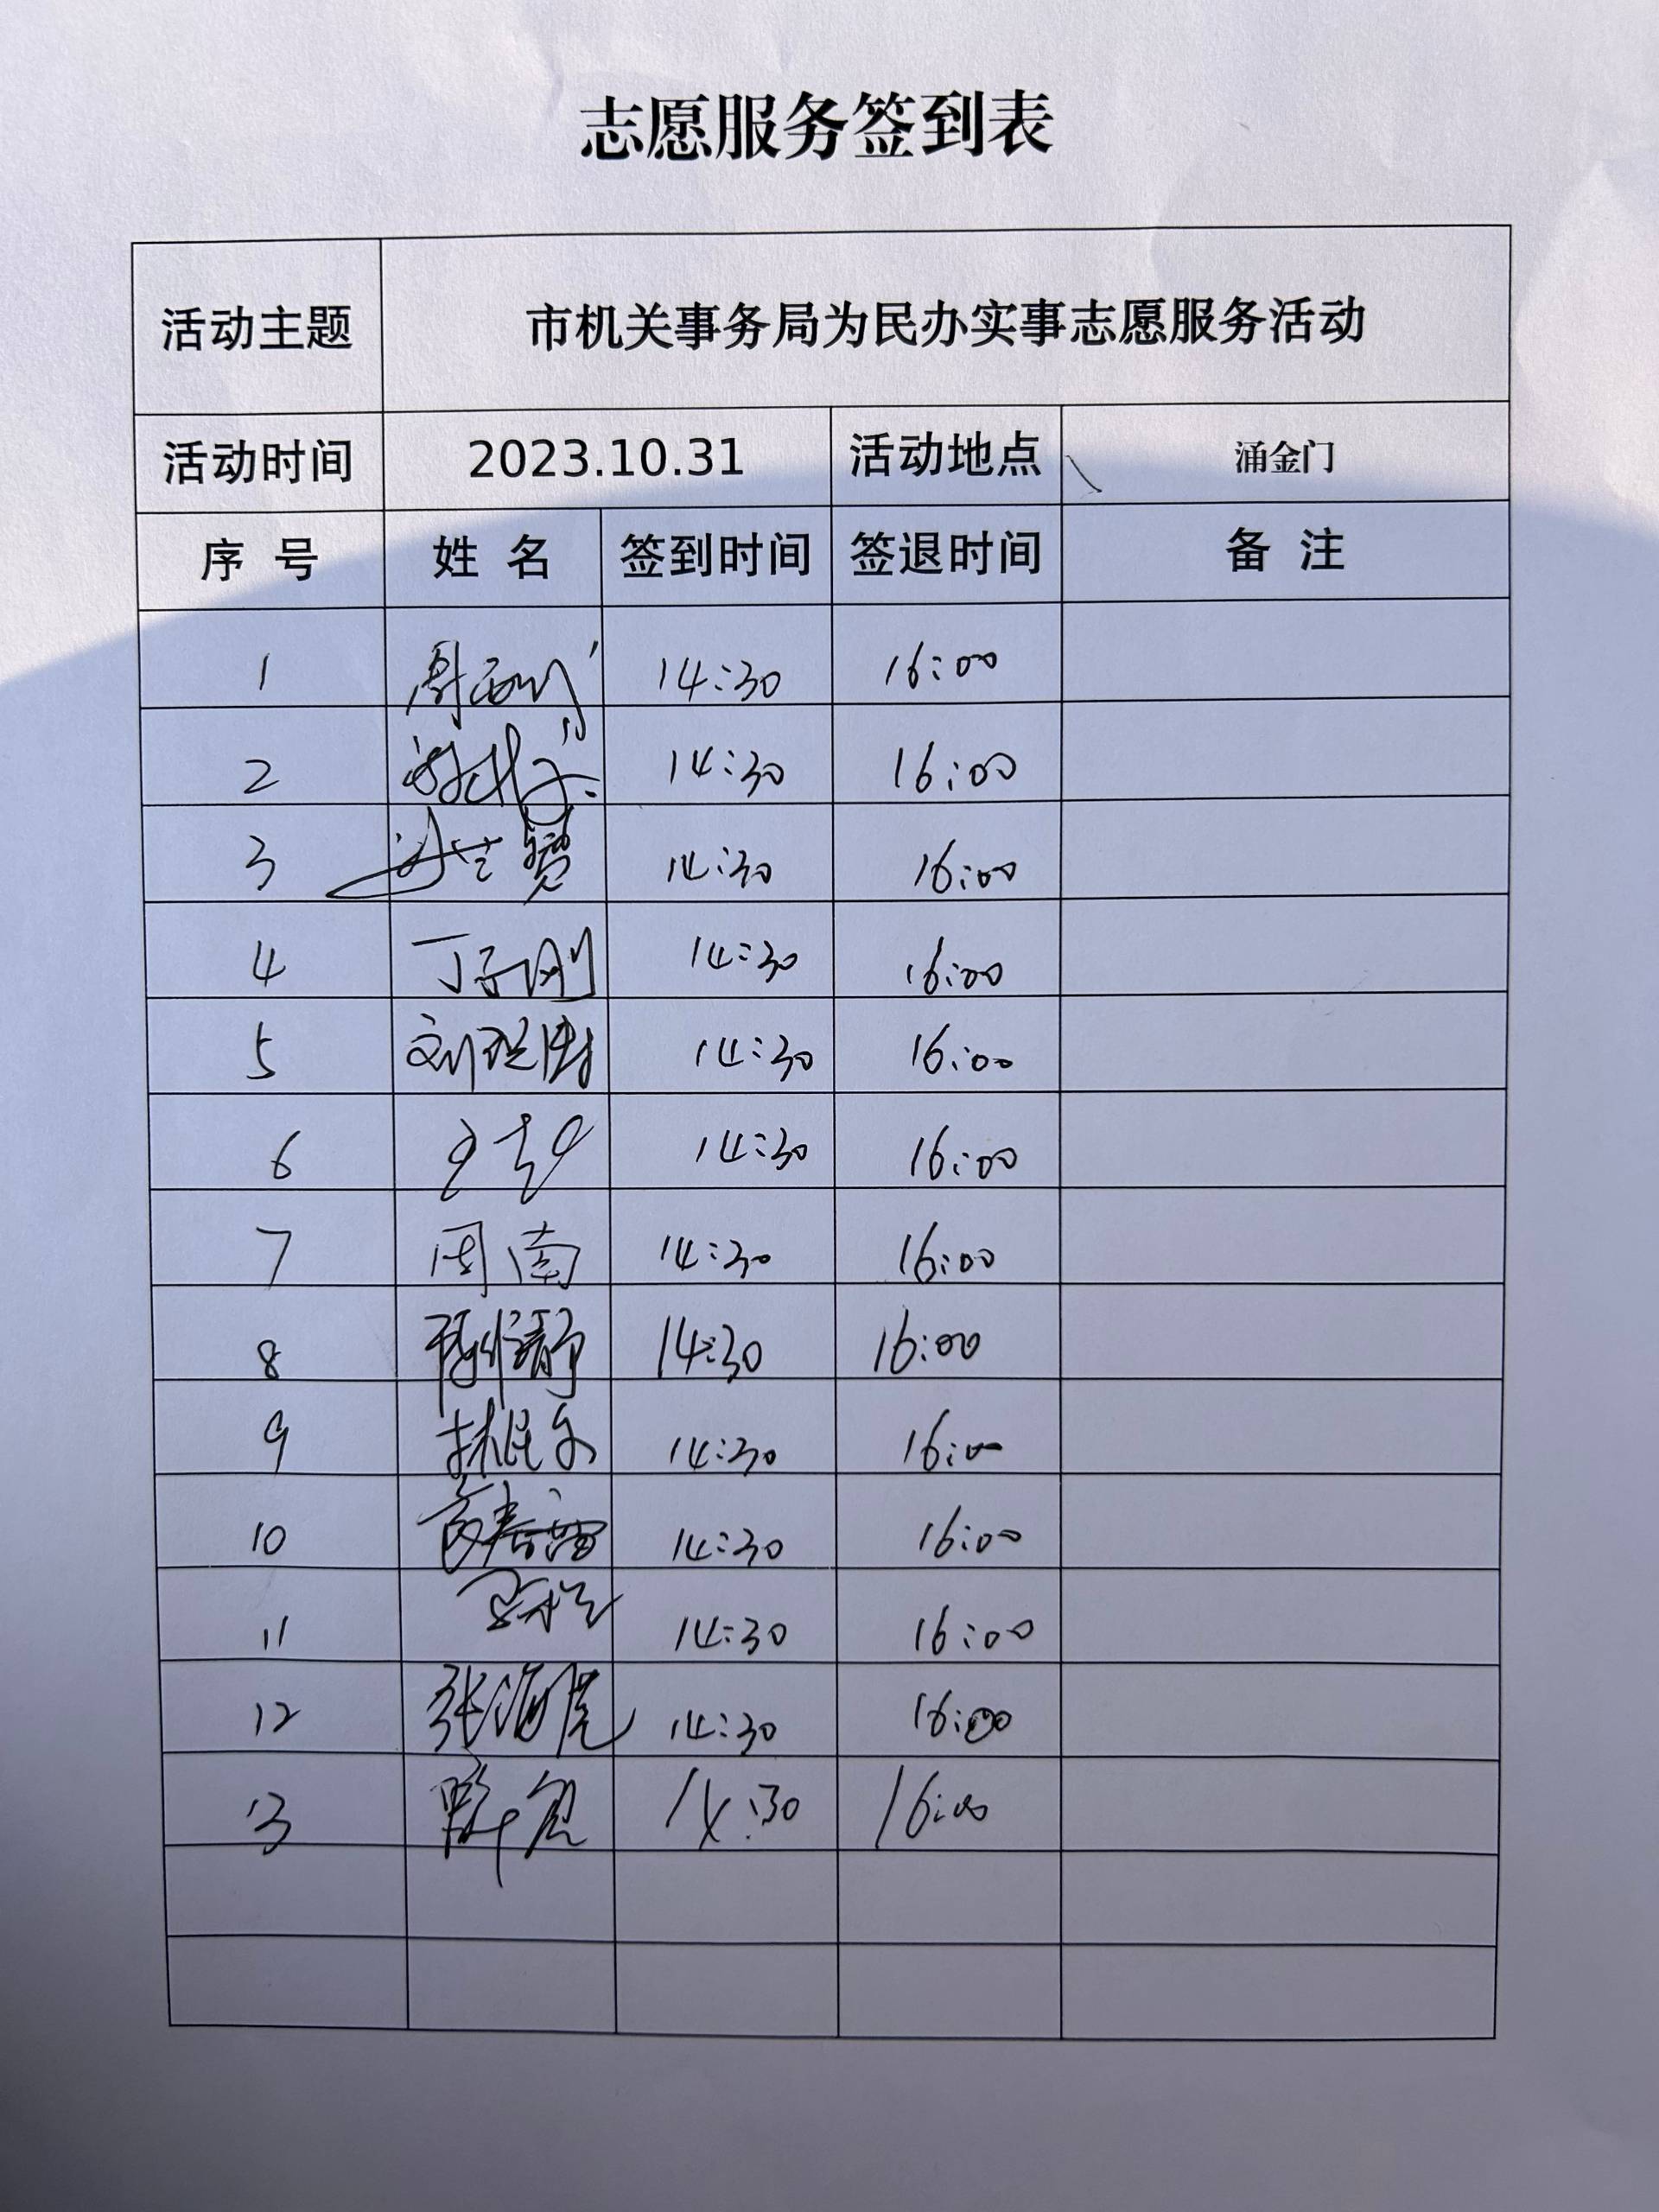 志愿服务签到表
活动主题 市机关事务局为民办实事志愿服务活动
活动时间 2023.10.31 活动地点 涌金门
序 号 姓 名 签到时间 签退时间 备 注
1 14:30 16:00
2 14:30 16:00
3 14:30 16:00
4 丁子刚 14:30 16:00
5 刘 14:30 16:00
6 14:30 16:00
7 周南 14:30 16:00
8 静 14:30 16:00
9 林 14:30 16:00
10 14:30 16:00
11 14:30 16:00
12 张海虎 14:30 16:00
13 14:30 16:00